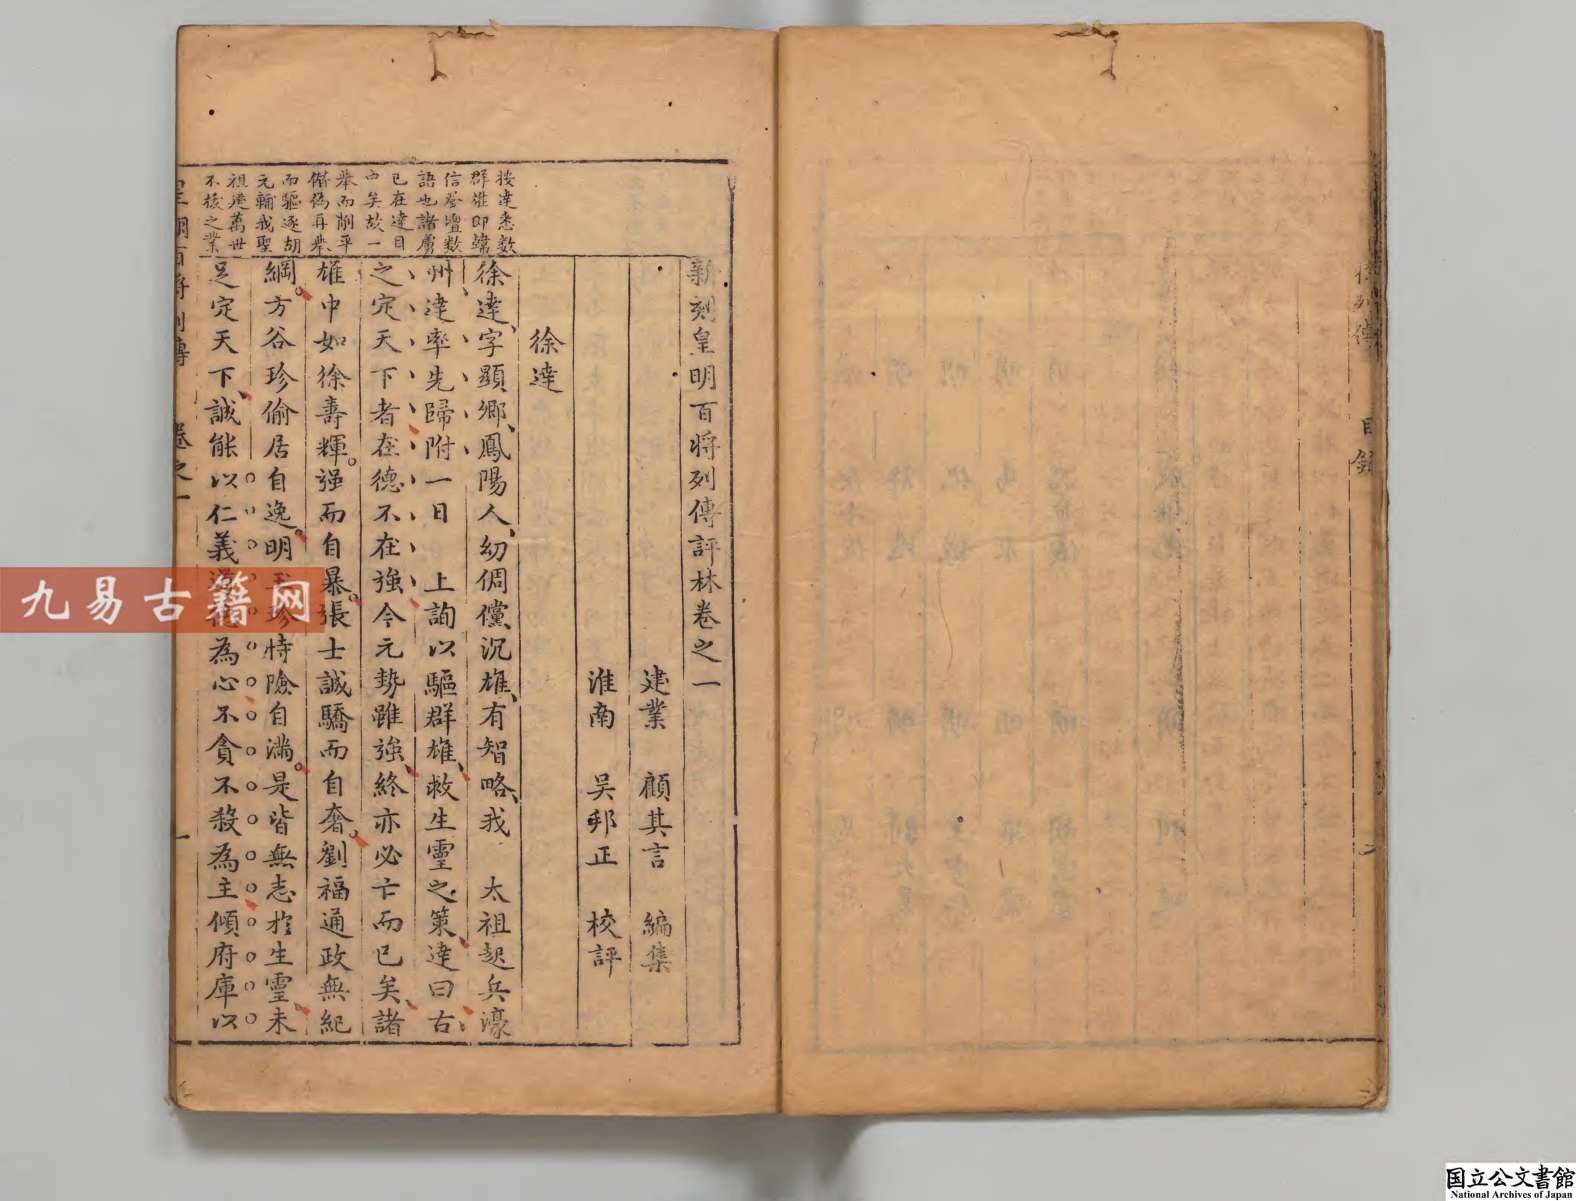 新刻皇明百將列傳評林卷之一
建業 顧其言 編集
淮南 吳邦正 校評
徐達
徐達字顯鄉鳳陽人幼倜儻沉雄有智略我 太祖起兵濠
州達率先歸附一日 上詢以驅群雄救生靈之策達曰古
之定天下者在德不在強今元勢雖強終亦必亡而已矣諸
雄中如徐壽輝强而自暴張士誠驕而自奢劉福通政無紀
綱方谷珍偷居自逸明玉珍恃險自滿是皆無志於生靈未
足定天下誠能以仁義道德為心不貪不殺為主傾府庫以
按達悉數
群雄即韓
信登壇數
語也諸虜
已在達目
中矣故一
舉而削平
僭偽再舉
而驅逐胡
元輔我聖
祖建萬世
不拔之業
皇明百將列傳 卷之一 一
目錄
九易古籍网
国立公文書館
National Archives of Japan